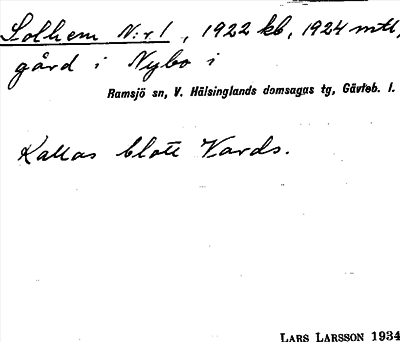 Solhem N:r 1, 1922 kb, 1924 mtl,
gård i Nybo i
Ramsjö sn, V. Hälsinglands domsagas tg, Gävleb. l.
Kallas blott Vards.
LARS LARSSON 1934